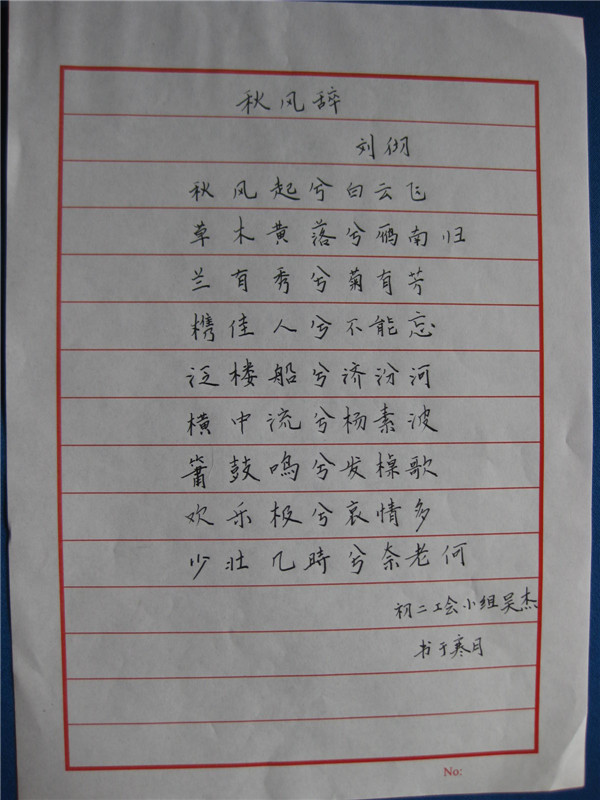 秋风辞
刘彻
秋风起兮白云飞
草木黄落兮雁南归
兰有秀兮菊有芳
携佳人兮不能忘
泛楼船兮济汾河
横中流兮杨素波
箫鼓鸣兮发棹歌
欢乐极兮哀情多
少壮几時兮奈老何
初二工会小组吴杰
书于寒月
No: